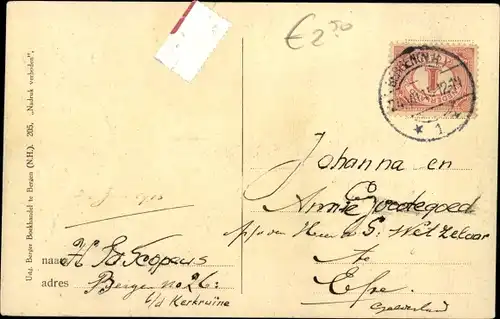 Uitg. Berger Boekhandel te Bergen (N.H.). 205. „Nadruk verboden".
€ 2 50
BERGEN (N.H.)
12-1N
1
1
Johanna en
Annie Goedegoed
p/a van Heer S. Wetzelaar
te
Epe
Gelderland
naam
adres Bergen no 26:
b/d Kerkruïne